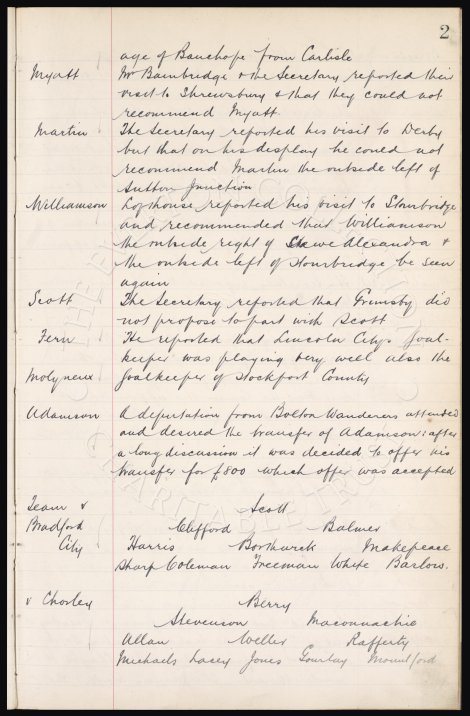 2
age of Bauchope from Carlisle
Myatt Mr Bainbridge & the Secretary reported their
visit to Shrewsbury & that they could not
recommend Myatt.
Martin The Secretary reported his visit to Derby
but that on his display he could not
recommend Martin the outside left of
Sutton Junction
Williamson Lofthouse reported his visit to Stourbridge
and recommended that Williamson
the outside right of Crewe Alexandra &
the outside left of Stourbridge be seen
again
Scott The Secretary reported that Grimsby did
not propose to part with Scott
Fern He reported that Lincoln City's Goal-
keeper was playing very well also the
Molyneux Goalkeeper of Stockport County
Adamson A deputation from Bolton Wanderers attended
and desired the transfer of Adamson: after
a long discussion it was decided to offer his
transfer for £800 which offer was accepted
Team v Scott
Bradford Clifford Balmer
City Harris Borthwick Makepeace
Sharp Coleman Freeman White Barlow.
v Chorley Berry
Stevenson Maconnachie
Allan Weller Rafferty
Michaels Lacey Jones Gourlay Mountford